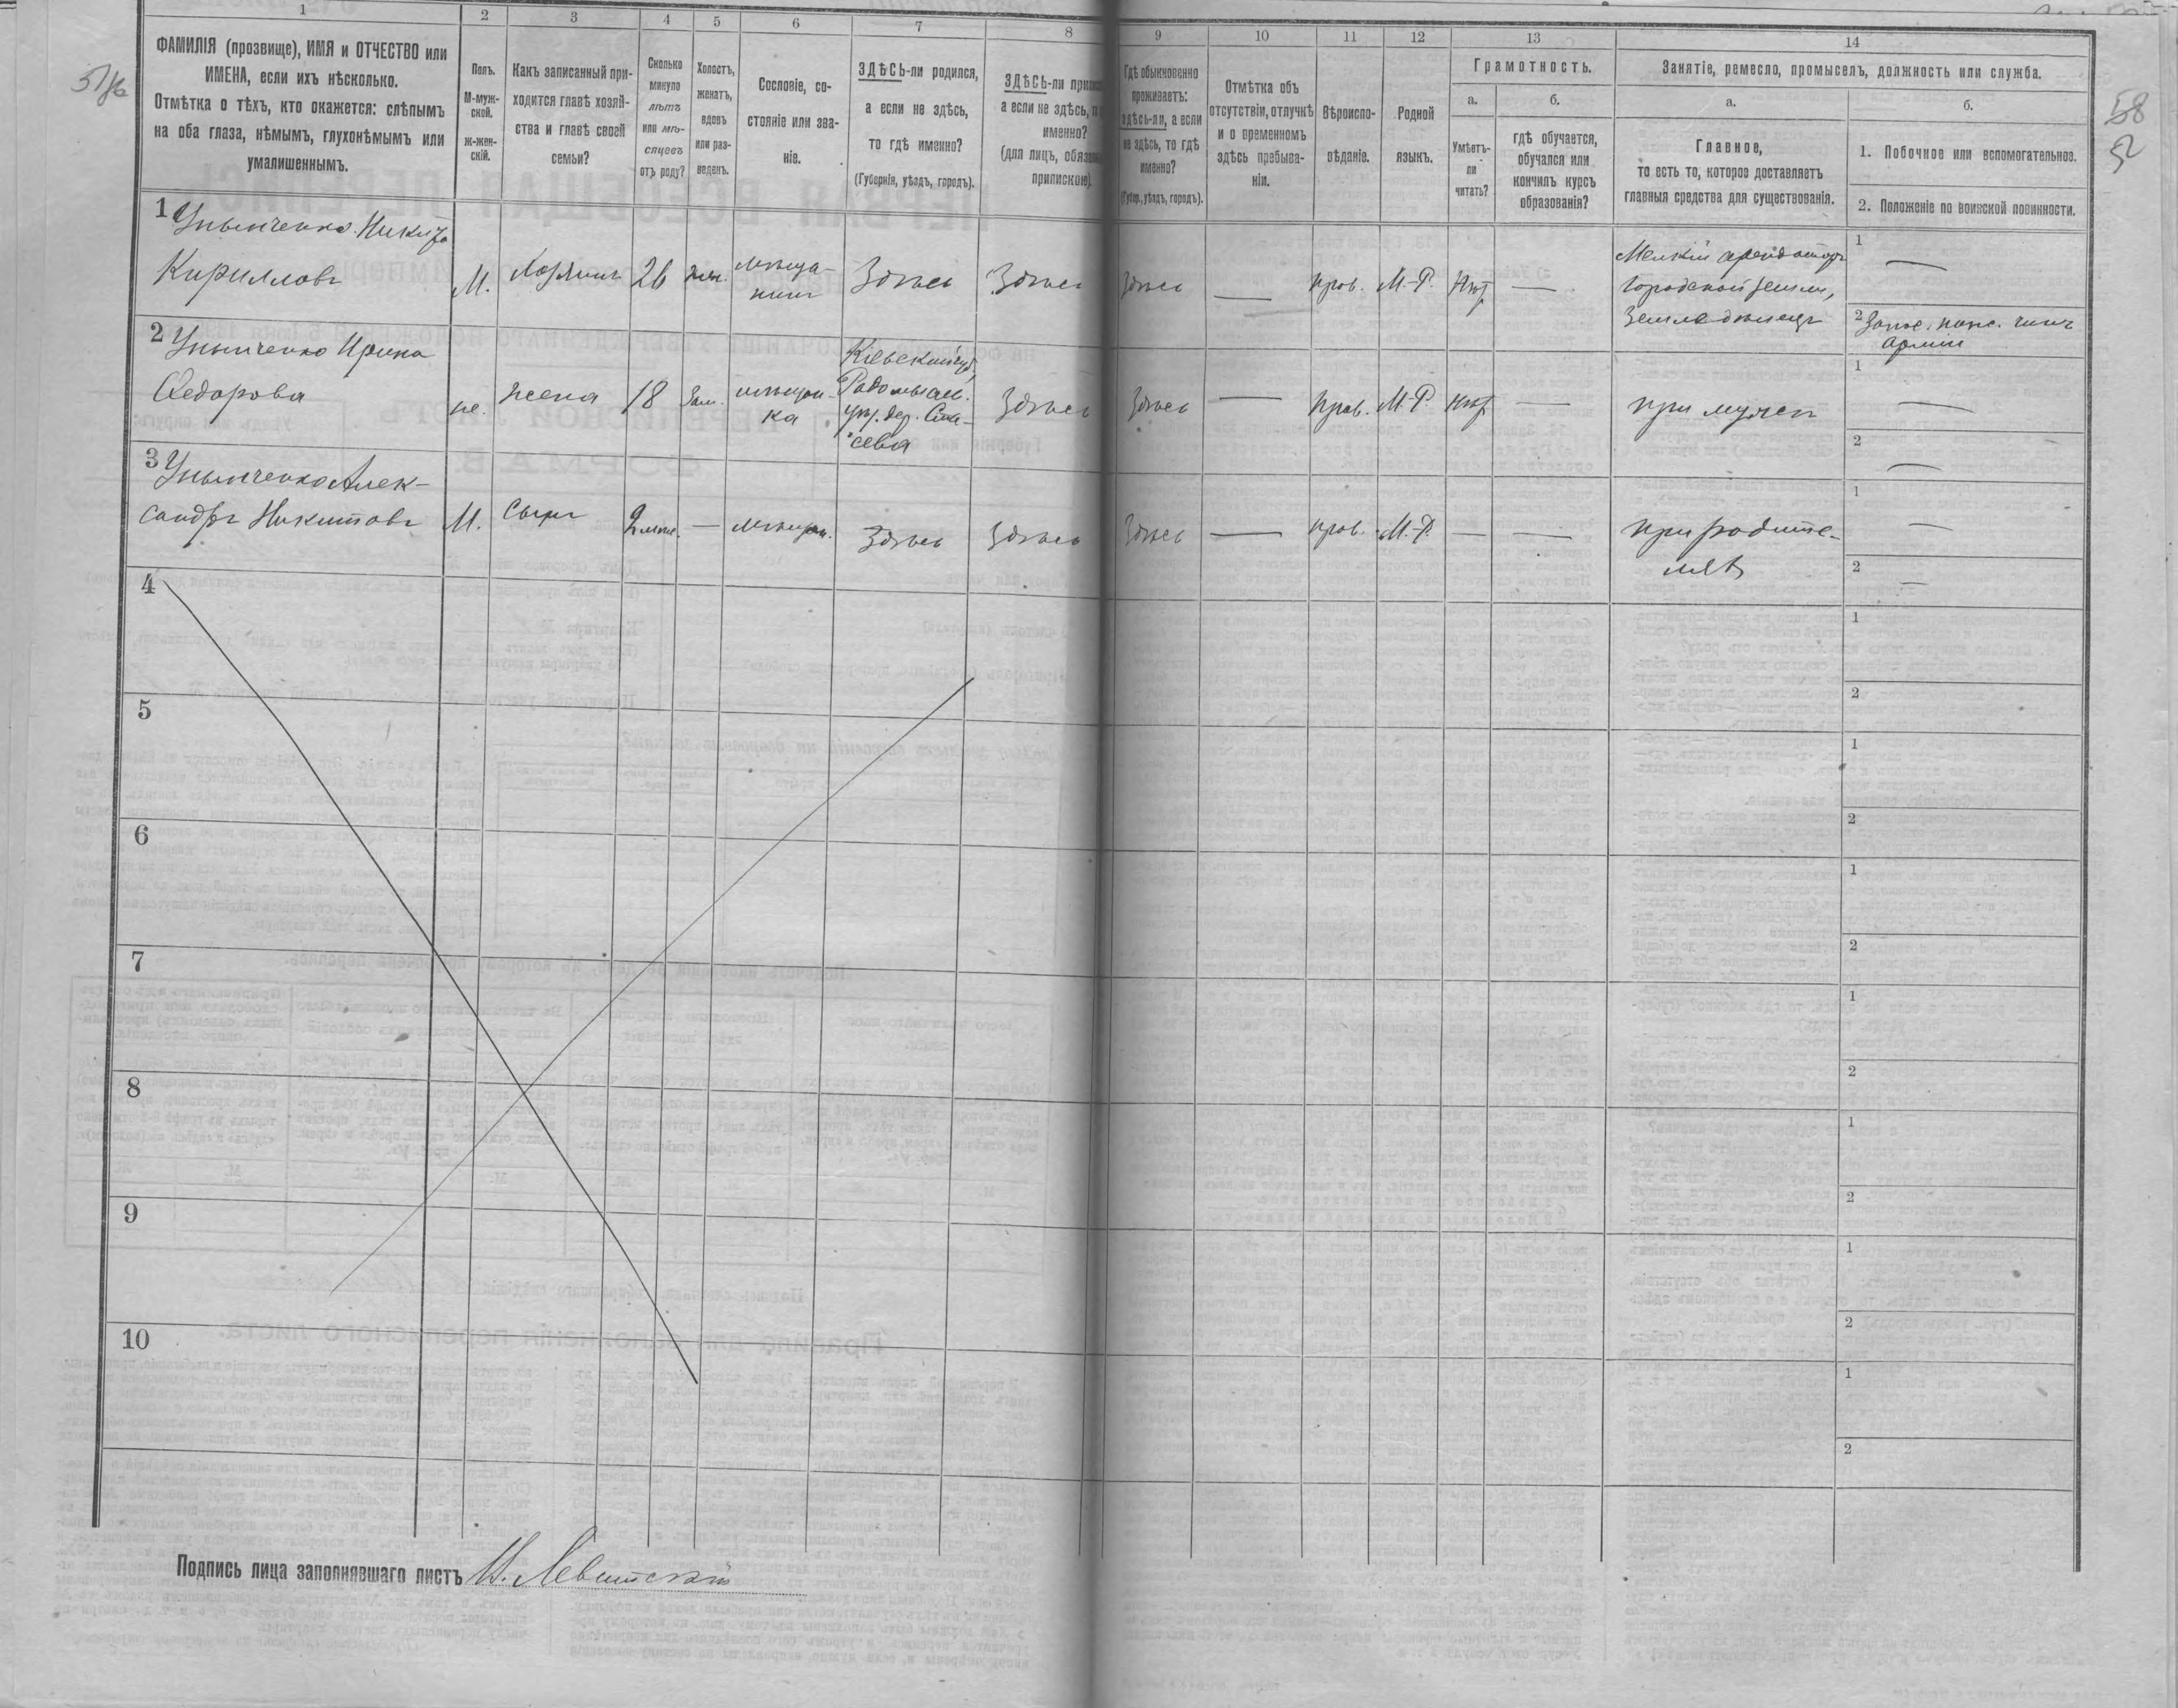 1
2
3
4
5
6
7
8
9
10
11
12
13
14
ФАМИЛІЯ (прозвище), ИМЯ и ОТЧЕСТВО или
ИМЕНА, если ихъ нѣсколько.
Отмѣтка о тѣхъ, кто окажется: слѣпымъ
на оба глаза, нѣмымъ, глухонѣмымъ или
умалишеннымъ.
Полъ.
М-муж-
ской.
ж-жен-
скій.
Какъ записанный при-
ходится главѣ хозяй-
ства и главѣ своей
семьи?
Сколько
минуло
лѣтъ
или мѣ-
сяцевъ
отъ роду?
Холостъ,
женатъ,
вдовъ
или раз-
веденъ.
Сословіе, со-
стояніе или зва-
ніе.
ЗДѢСЬ-ли родился,
а если не здѣсь,
то гдѣ именно?
(Губернія, уѣздъ, городъ).
ЗДѢСЬ-ли
а если не здѣсь,
именно?
(для лицъ,
припискою)
Гдѣ обыкновенно
проживаетъ:
здѣсь-ли, а если
не здѣсь, то гдѣ
именно?
(Губер., уѣздъ, городъ).
Отмѣтка объ
отсутствіи, отлучкѣ
и о временномъ
здѣсь пребыва-
ніи.
Вѣроиспо-
вѣданіе.
Родной
языкъ.
Грамотность.
а.
Умѣетъ-
ли
читать?
б.
гдѣ обучается,
обучался или
кончилъ курсъ
образованія?
Занятіе, ремесло, промыселъ, должность или служба.
а.
Главное,
то есть то, которое доставляетъ
главныя средства для существованія.
б.
1. Побочное или вспомогательное.
2. Положеніе по воинской повинности.
58
52
1
Никита
Кирилловъ
М.
Хозяинъ
26
жен.
мѣща-
нинъ
Здѣсь
Здѣсь
Здѣсь
—
прав.
М.-Р.
Нѣт
—
Мелкій арендаторъ
городской земли,
Земледѣлецъ
1
—
2 Запас. чинъ
арміи
2
Ирина
Федорова
же.
жена
18
Зам.
мѣщан-
ка
Кіевской губ,
Радомысл.
уѣз. дер.
Здѣсь
Здѣсь
—
Прав.
М.-Р.
Нѣт
—
при мужѣ
1
—
2
—
3
Алек-
сандръ Никитовъ
М.
Сынъ
2 мѣс.
—
мѣщан.
Здѣсь
Здѣсь
Здѣсь
—
прав.
М.-Р.
—
—
при родите-
ляхъ
1
—
2
—
4
1
2
5
1
2
6
1
2
7
1
2
8
1
2
9
1
2
10
1
2
Подпись лица заполнявшаго листъ
Левитскій